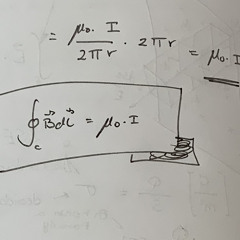 = μ₀. I / 2πr · 2πr = μ₀. I
∮c B⃗ dl⃗ = μ₀. I